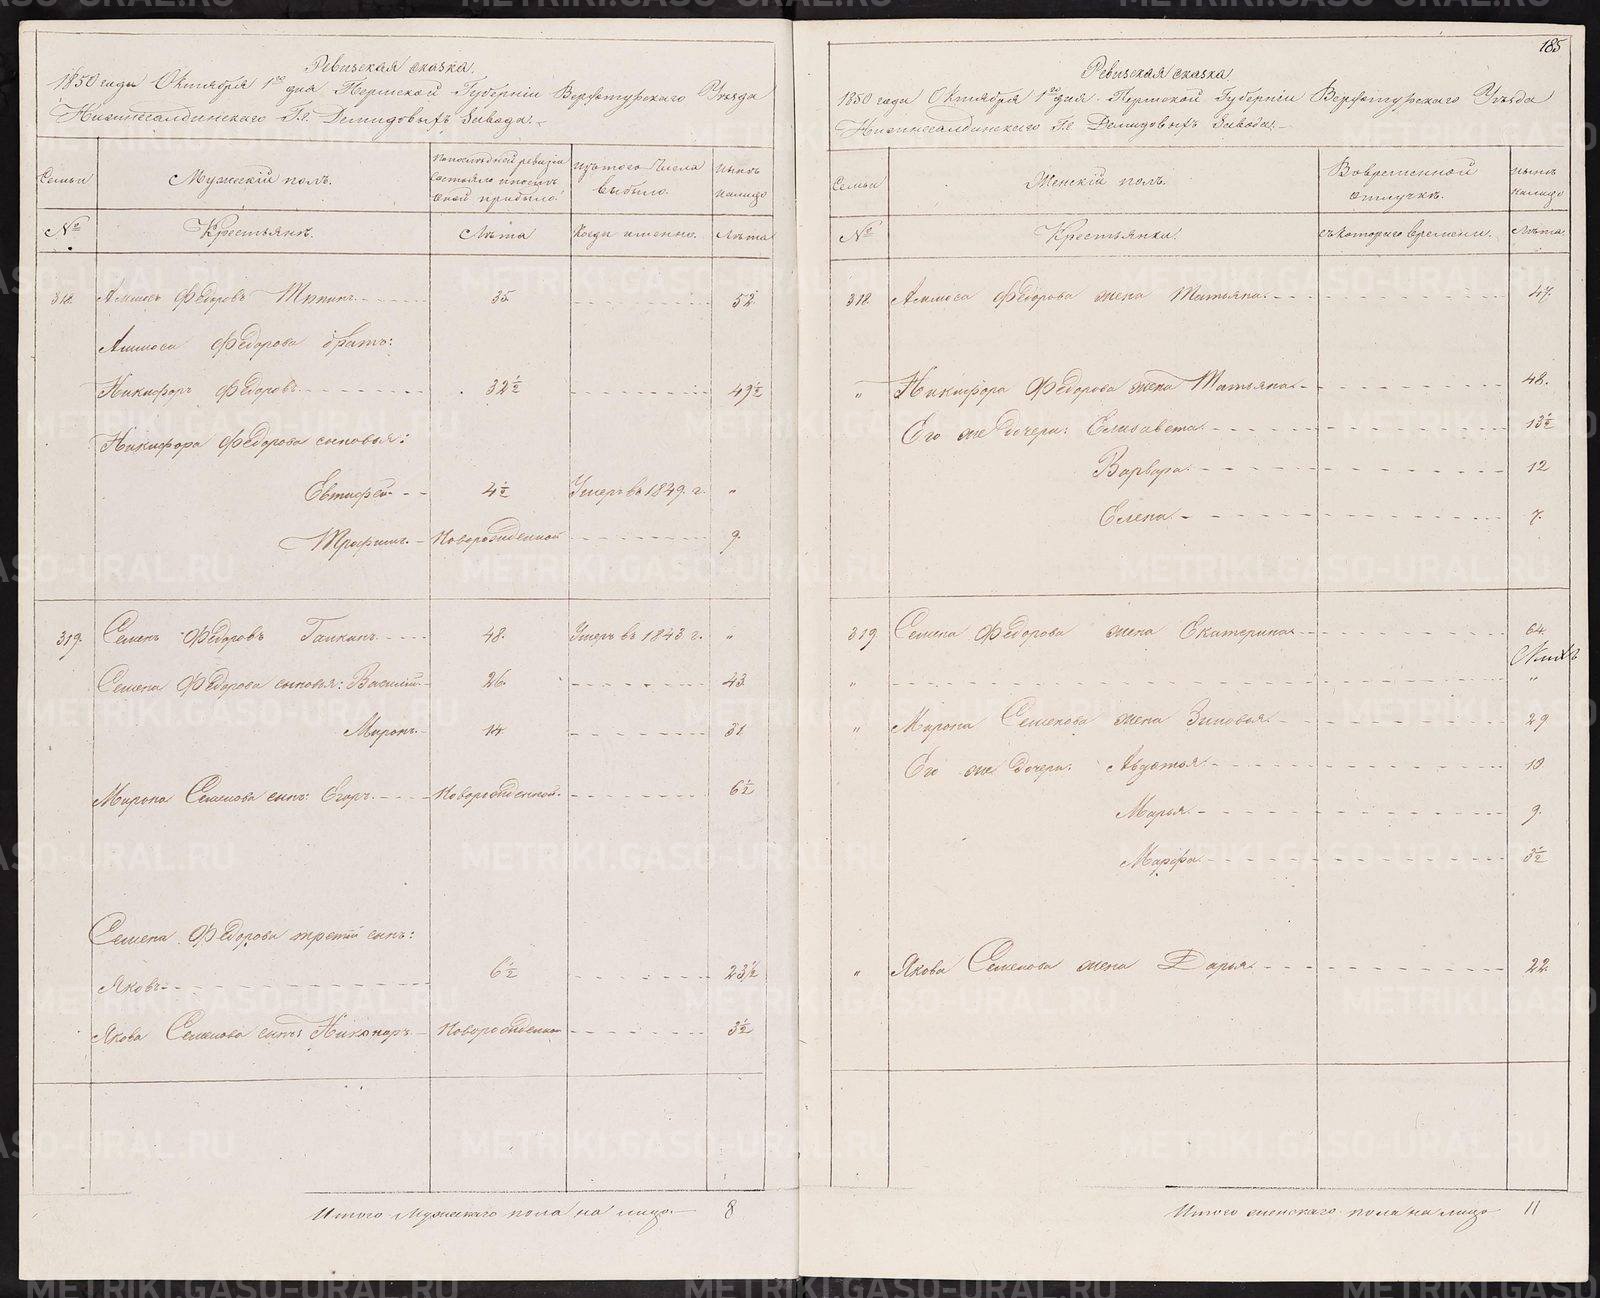 Ревизская сказка.
1850 года Октября 1го дня Пермской Губернiи Верхотурскаго Уезда
Нижнесалдинскаго Гг. Демидовыхъ Завода.
Семьи
Мужескiй полъ.
По последней ревизiи состояло и после оной прибыло.
Изъ того числа выбыло.
Ныне налицо
№
Крестьяне.
Лета
Когда именно.
Лета
318. Аммосъ Федоровъ 35. 52.
Аммоса Федорова братъ:
Никифоръ Федоровъ. 32½ 49½
Никифора Федорова сыновья:
Евтифей 4½ Умеръ въ 1849. г. "
Трофимъ. Новорожденной 9.
319. Семенъ Федоровъ Галкинъ 48. Умеръ въ 1843 г. "
Семена Федорова сыновья: Василiй 26. 43.
Миронъ. 14 31.
Мирона Семенова сынъ: Егоръ. Новорожденной. 6½
Семена Федорова третiй сынъ:
Яковъ 6½ 23½
Якова Семенова сынъ: Никоноръ Новорожденной 3½
Итого Мужескаго пола на лицо 8
185
Ревизская сказка
1850 года Октября 1го дня. Пермской Губернiи Верхотурскаго Уезда
Нижнесалдинскаго Гг. Демидовыхъ Завода.
Семьи
Женскiй полъ.
Во временной отлучке.
Ныне налицо
№
Крестьянки.
Съ котораго времени.
Лета.
318. Аммоса Федорова жена Татьяна. 47.
" Никифора Федорова жена Татьяна 48.
Его же дочери: Елизавета 13½
Варвара. 12
Елена. 7.
319 Семена Федорова жена Екатерина 64.
" "
" Мирона Семенова жена Зиновья. 29
Его же дочери: Авдотья 10.
Марья. 9.
Марфа. 3½
" Якова Семенова жена Дарья. 22.
Итого женскаго пола на лицо 11
METRIKI.GASO-URAL.RU